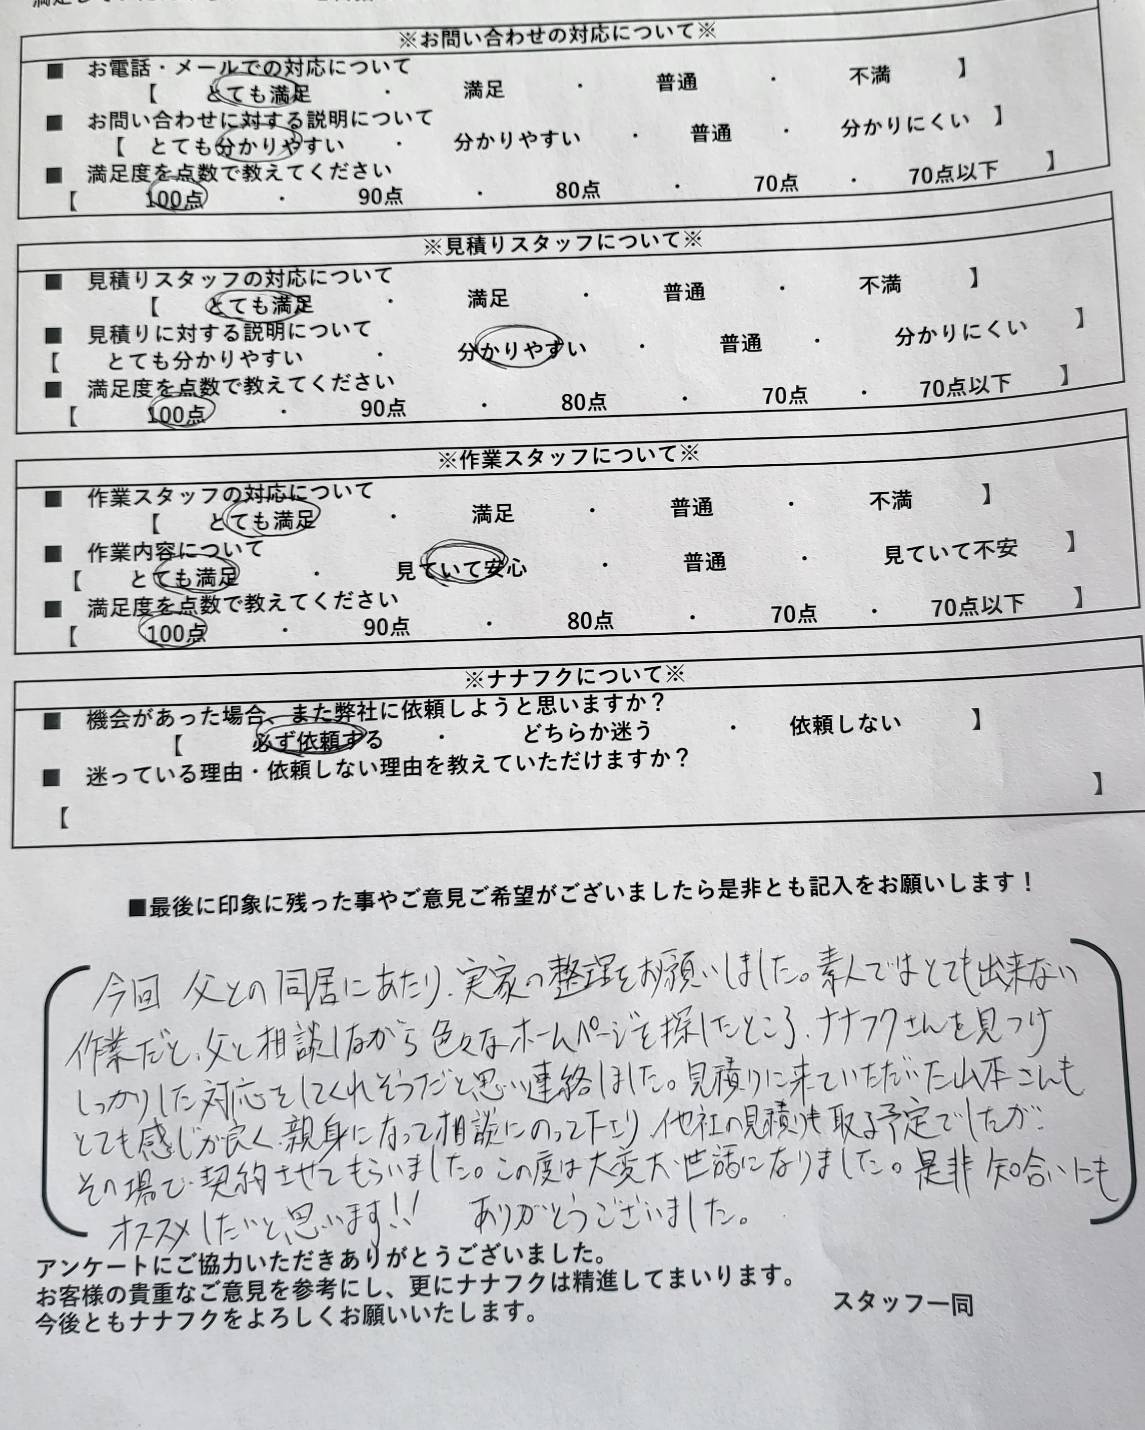 ※お問い合わせの対応について※
■ お電話・メールでの対応について
【 とても満足 ・ 満足 ・ 普通 ・ 不満 】
■ お問い合わせに対する説明について
【 とても分かりやすい ・ 分かりやすい ・ 普通 ・ 分かりにくい 】
■ 満足度を点数で教えてください
【 100点 ・ 90点 ・ 80点 ・ 70点 ・ 70点以下 】
※見積りスタッフについて※
■ 見積りスタッフの対応について
【 とても満足 ・ 満足 ・ 普通 ・ 不満 】
■ 見積りに対する説明について
【 とても分かりやすい ・ 分かりやすい ・ 普通 ・ 分かりにくい 】
■ 満足度を点数で教えてください
【 100点 ・ 90点 ・ 80点 ・ 70点 ・ 70点以下 】
※作業スタッフについて※
■ 作業スタッフの対応について
【 とても満足 ・ 満足 ・ 普通 ・ 不満 】
■ 作業内容について
【 とても満足 ・ 見ていて安心 ・ 普通 ・ 見ていて不安 】
■ 満足度を点数で教えてください
【 100点 ・ 90点 ・ 80点 ・ 70点 ・ 70点以下 】
※ナナフクについて※
■ 機会があった場合、また弊社に依頼しようと思いますか？
【 必ず依頼する ・ どちらか迷う ・ 依頼しない 】
■ 迷っている理由・依頼しない理由を教えていただけますか？
【 】
■最後に印象に残った事やご意見ご希望がございましたら是非とも記入をお願いします！
今回 父との同居にあたり、実家の整理をお願いしました。素人ではとても出来ない
作業だと、父と相談しながら色々なホームページを探したところ、ナナフクさんを見つけ
しっかりした対応をしてくれそうだと思い連絡しました。見積りに来ていただいた山本さんも
とても感じが良く、親身になって相談にのって下さり、他社の見積りも取る予定でしたが、
その場で契約させてもらいました。この度は大変お世話になりました。是非 知合いにも
オススメしたいと思います!! ありがとうございました。
アンケートにご協力いただきありがとうございました。
お客様の貴重なご意見を参考にし、更にナナフクは精進してまいります。
今後ともナナフクをよろしくお願いいたします。
スタッフ一同